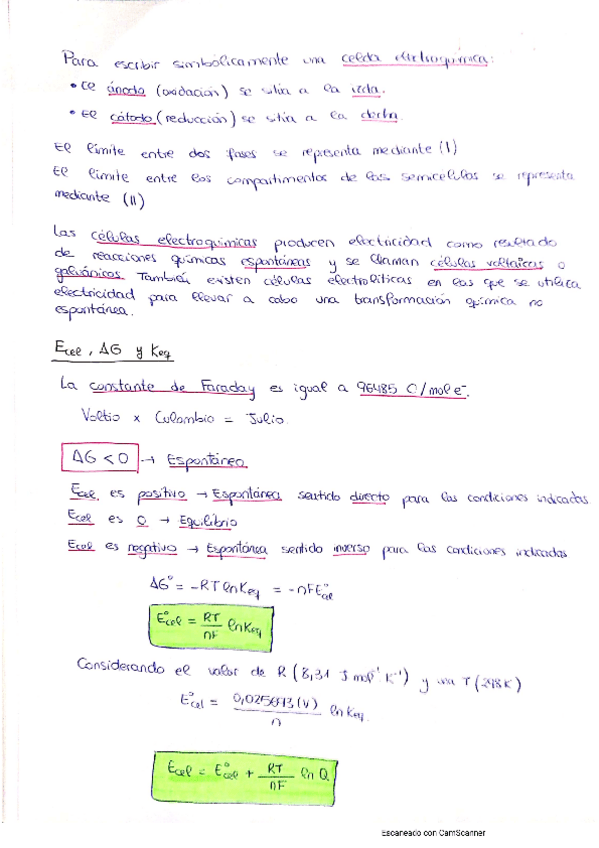 Para escribir simbólicamente una celda electroquímica:
• El ánodo (oxidación) se sitúa a la izda.
• El cátodo (reducción) se sitúa a la dcha.
El límite entre dos fases se representa mediante (|)
El límite entre los compartimentos de las semicélulas se representa
mediante (||)
Las células electroquímicas producen electricidad como resultado
de reacciones químicas espontáneas y se llaman células voltaicas o
galvánicas. También existen células electrolíticas en las que se utiliza
electricidad para llevar a cabo una transformación química no
espontánea.
Ecel, ΔG y Keq
La constante de Faraday es igual a 96485 C/mol e⁻.
Voltio x Culombio = Julio
ΔG < 0 → Espontánea
Ecel es positivo → Espontánea sentido directo para las condiciones indicadas
Ecel es 0 → Equilibrio
Ecel es negativo → Espontánea sentido inverso para las condiciones indicadas
ΔG° = -RT ln Keq = -nFE°cel
E°cel = RT/nF ln Keq
Considerando el valor de R (8,31 J mol⁻¹ K⁻¹) y una T (298K)
E°cel = 0,025693 (V)/n ln Keq.
Ecel = E°cel + RT/nF ln Q
Escaneado con CamScanner